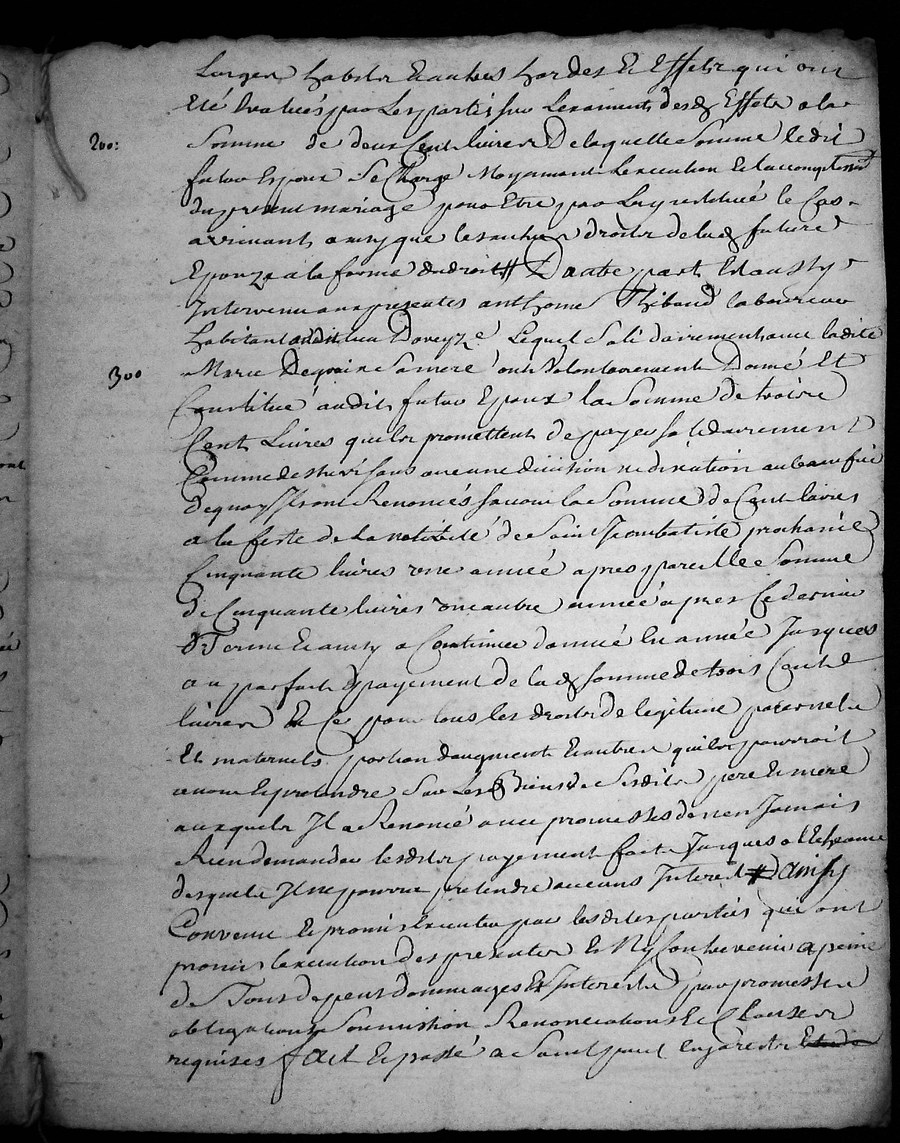 Linges habits Et autres hardes Et Effets qui ont
Eté Evalués par Les parties sur Lexament desd Effets a la
200: Somme de deux Cent livres De laquelle Somme ledit
futur Epoux Se Charge Moyennant Lexecution Et laccomplissemt
du present mariage pour Etre par Luy restitué le Cas
arrivant ainsy que les autres droits de lad future
Epouze a la forme du droit # Dautre part Et aussy
Intervenu aux presentes anthome Thibaud laboureur
habitant audit lieu Lequel Solidairement avec ladite
300 Marie Sa mere ont Volontairement Donné Et
Constitué audit futur Epoux la Somme de trois
Cent Livres quils promettent de payer solidairement
Comme dessus sans aucune division ni au benefice
de quoy Ils ont Renoncés savoir la Somme de Cent livres
a la feste de La nativité de Saint Jean batiste prochaine
Cinquante livres une année apres pareille Somme
de Cinquante livres une autre année apres Ce dernier
Terme Et ainsy a Continuer dannée En année Jusques
au parfait payement de lad somme de trois Cent
livres Et Ce pour tous les droits de legitime paternels
Et maternels portion daugment Et autres quils pourroit
avoir Et pretendre Sur Les Biens de Sesdits pere Et mere
auxquels Il a Renoncé avec promesses de nen Jamais
Rien demander lesdits payements faits Jusques a lecheance
desquels Il ne pourra pretendre aucuns Interest # Ainsy
Convenu Et promis Executer par lesdites parties qui ont
promis lexecution des presentes Et Ny Contrevenir a peine
de Tous depens dommages Et Interests par promesses
obligations Soumission Renonciations Et Clauses
requises fait Et passé a Saint paul en jarest